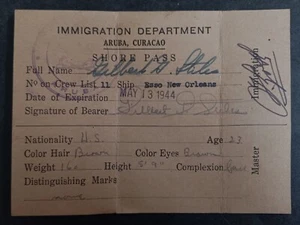 IMMIGRATION DEPARTMENT
ARUBA, CURACAO
SHORE PASS
Full Name Gilbert D. Stiles
No on Crew List 11 Ship Esso New Orleans
Date of Expiration MAY 13 1944
Signature of Bearer Gilbert D. Stiles
Immigration
Nationality U.S. Age 23
Color Hair Brown Color Eyes Brown
Weight 160 Height 5'9" Complexion
Distinguishing Marks
none
Master